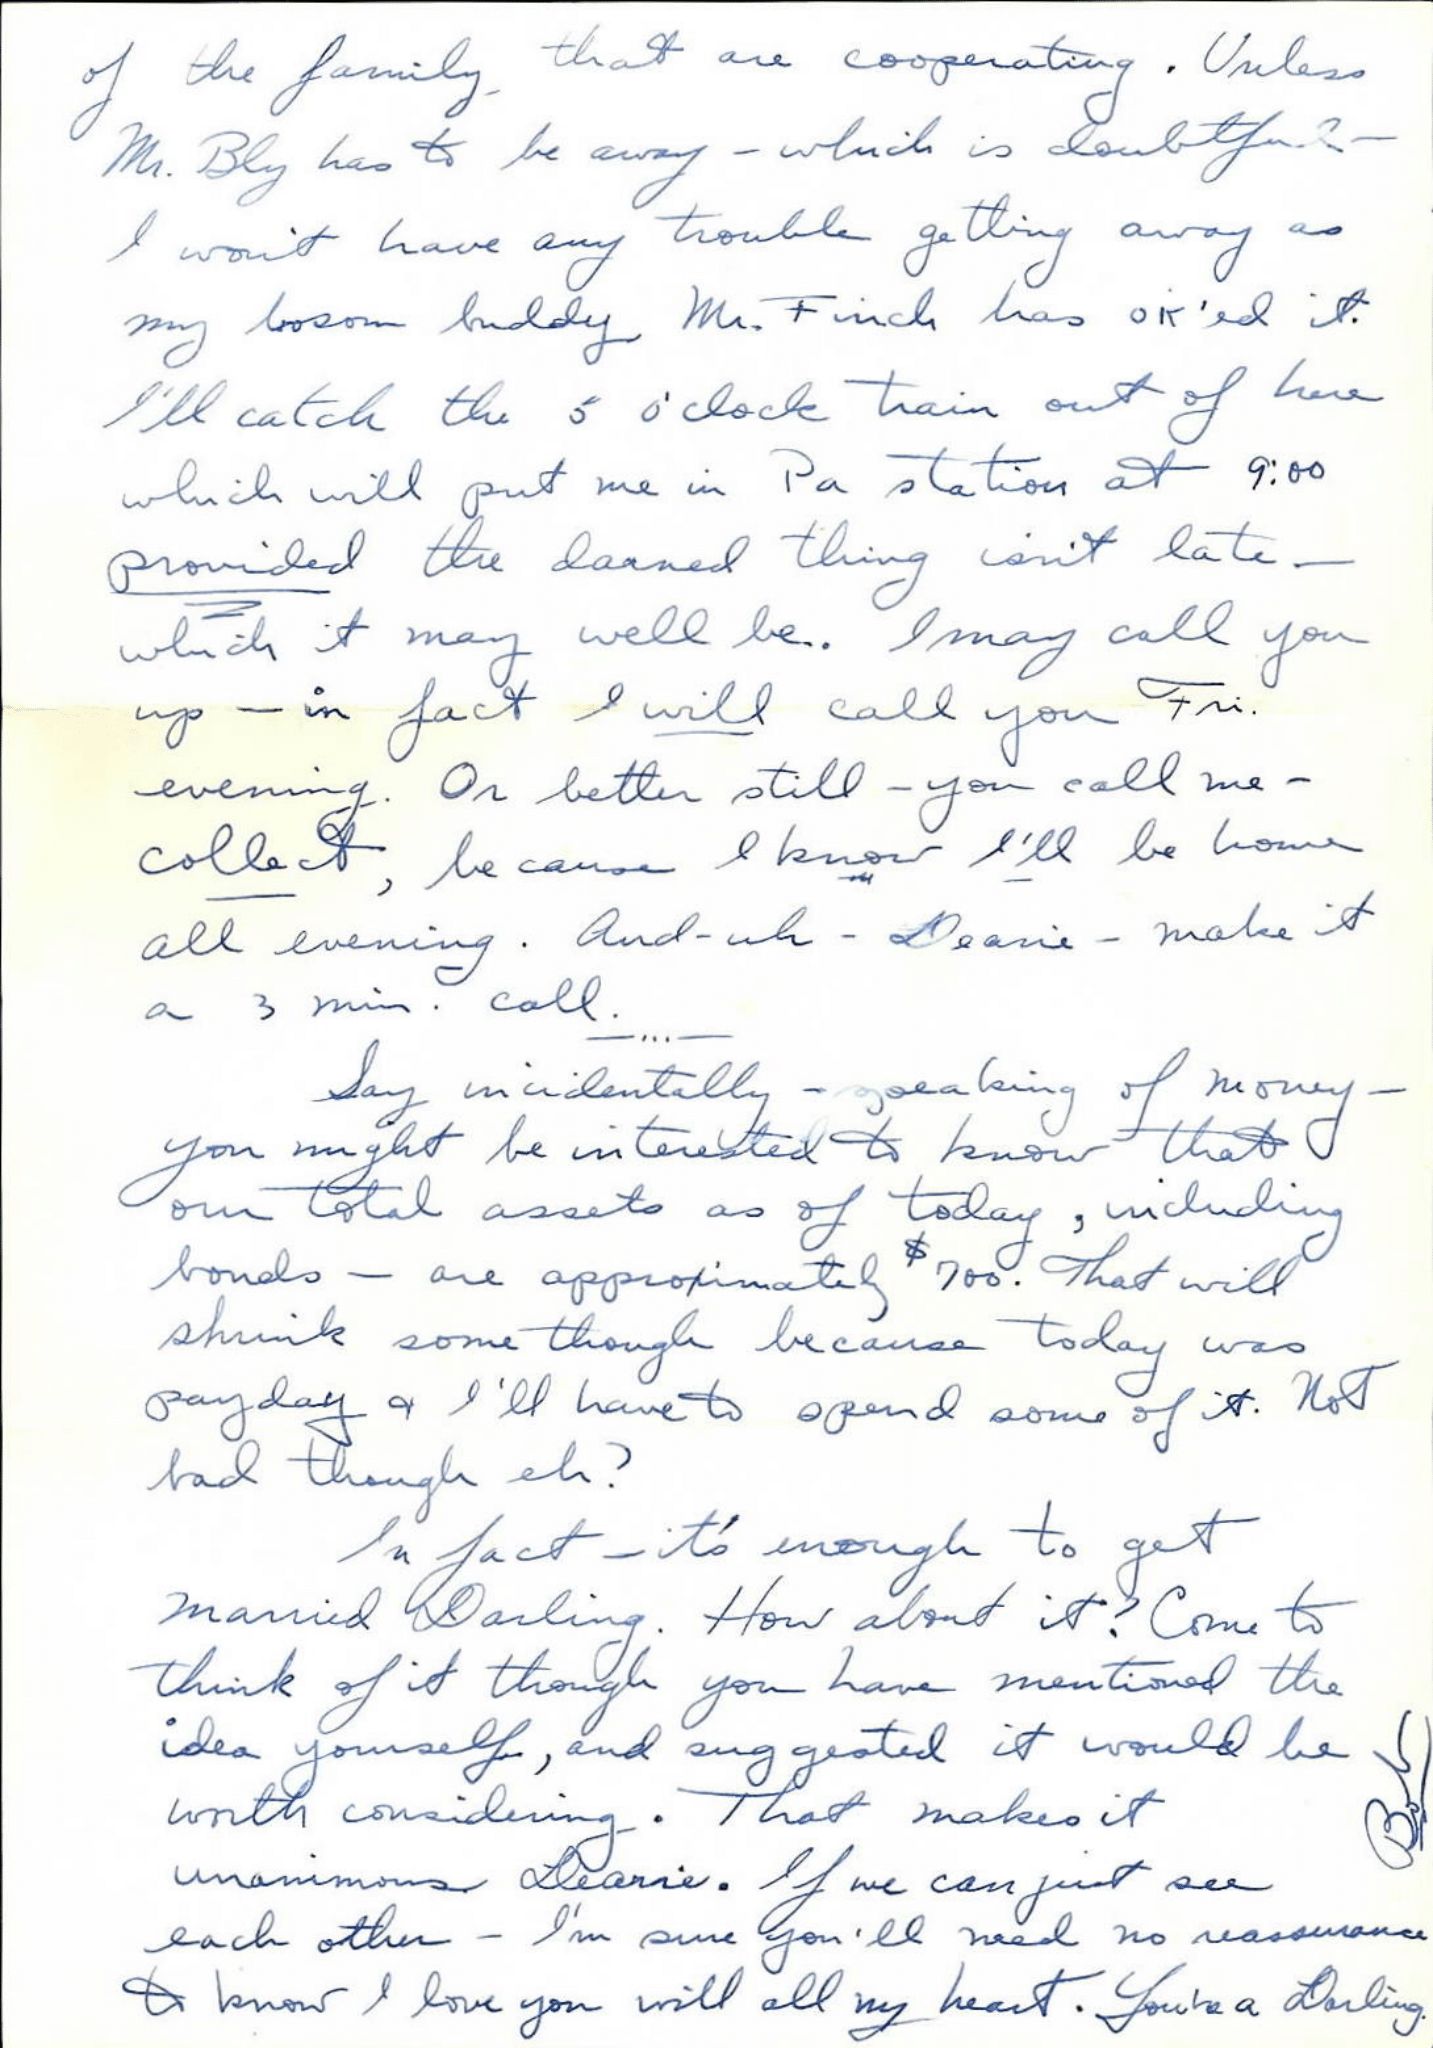 of the family that are cooperating. Unless
Mr. Bly has to be away – which is doubtful –
I won't have any trouble getting away as
my bosom buddy Mr. Finch has OK'ed it.
I'll catch the 5 o'clock train out of here
which will put me in Pa station at 9:00
provided the darned thing isn't late –
which it may well be. I may call you
up – in fact I will call you Fri.
evening. Or better still – you call me –
collect, because I know I'll be home
all evening. And – uh – Dearie – make it
a 3 min. call.
—...—
Say incidentally – speaking of money –
you might be interested to know that
our total assets as of today, including
bonds – are approximately $700. That will
shrink some though because today was
payday & I'll have to spend some of it. Not
bad though eh?
In fact – it's enough to get
married Darling. How about it? Come to
think of it though you have mentioned the
idea yourself, and suggested it would be
worth considering. That makes it
unanimous Dearie. If we can just see
each other – I'm sure you'll need no reassurance
to know I love you will all my heart. You're a Darling.
Bob